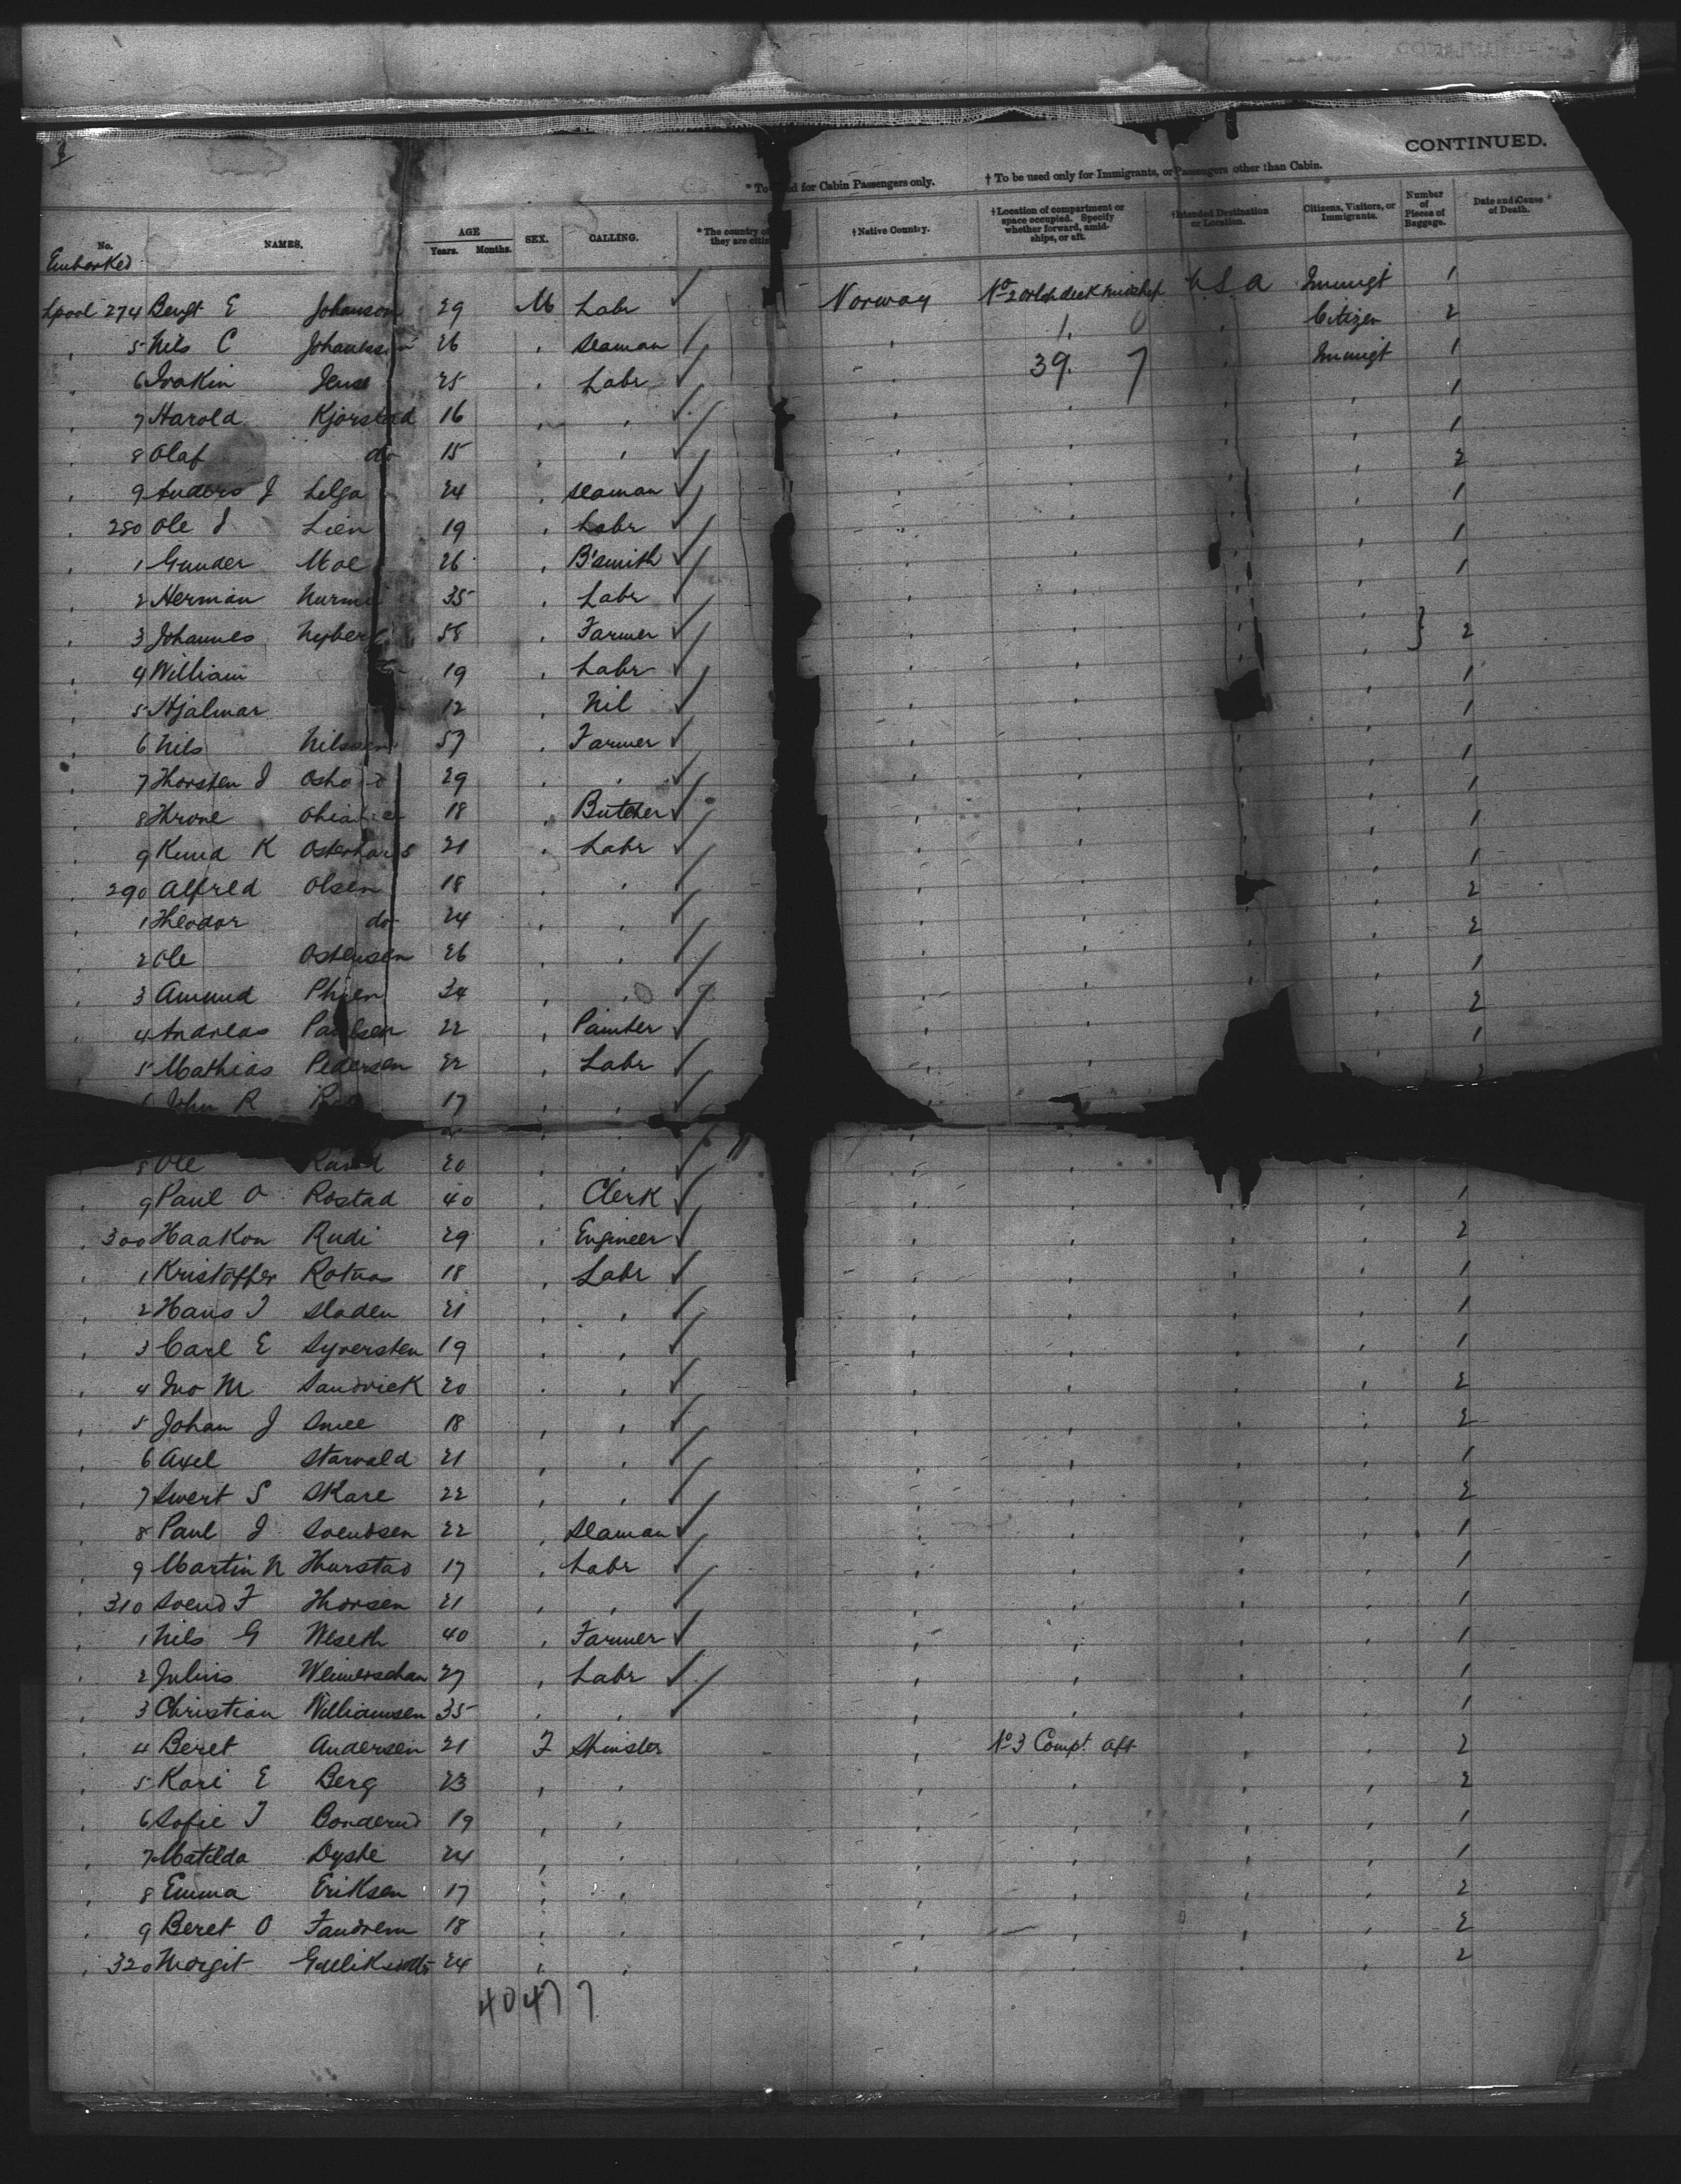 CONTINUED.
* To for Cabin Passengers only. † To be used only for Immigrants, or Passengers other than Cabin.
No. NAMES. AGE Years. Months. SEX. CALLING. * The country of they are citiz † Native Country. † Location of compartment or space occupied. Specify whether forward, amidships, or aft. † Intended Destination or Location. Citizens, Visitors, or Immigrants. Number of Pieces of Baggage. Date and Cause of Death.
Embarked
Lpool 274 Bengt E Johanson 29 M Labr ✓ Norway No 2 orlop deck midship U S A Immigt 1
" 5 Nils C 26 " Seaman ✓ " 1. " Citizen 2
" 6 Jens 25 " Labr ✓ " 39. 7 " Immigt 1
" 7 Harold Kjorstad 16 " " ✓ " " " " 1
" 8 Olaf do 15 " " ✓ " " " " 1
" 9 Anders J 24 " Seaman ✓ " " " " 2
" 280 Ole J Lien 19 " Labr ✓ " " " " 1
" 1 Gunder Moe 26 " B'smith ✓ " " " " 1
" 2 Herman Nurmi 35 " Labr ✓ " " " " 1
" 3 Johannes Nyberg 58 " Farmer ✓ " " " " } 2
" 4 William 19 " Labr ✓ " " " "
" 5 Hjalmar 12 " Nil ✓ " " " " 1
" 6 Nils Nilssen 57 " Farmer ✓ " " " " 1
" 7 Thorsten J 29 " " ✓ " " " " 1
" 8 Throne 18 " Butcher ✓ " " " " 1
" 9 Knud K 21 " Labr ✓ " " " " 1
" 290 Alfred Olsen 18 " " ✓ " " " " 1
" 1 Theodor do 24 " " ✓ " " " " 2
" 2 Ole Ostensen 26 " " ✓ " " " " 2
" 3 Amund 34 " " ✓ " " " " 1
" 4 Andreas Paulsen 22 " Painter ✓ " " " " 2
" 5 Mathias Pedersen 22 " Labr ✓ " " " " 1
John R 17 " " ✓
8 Ole 20 " " ✓ "
" 9 Paul O Rostad 40 " Clerk ✓ " " " " 1
" 300 Haakon Rudi 29 " Engineer ✓ " " " " 2
" 1 Kristoffer 18 " Labr ✓ " " " " 1
" 2 Hans J Sladen 21 " " ✓ " " " " 1
" 3 Carl E Syversten 19 " " ✓ " " " " 1
" 4 Jno M Sandvick 20 " " ✓ " " " " 2
" 5 Johan J 18 " " ✓ " " " " 2
" 6 Axel Starvald 21 " " ✓ " " " " 1
" 7 Sivert S Skare 22 " " ✓ " " " " 2
" 8 Paul J Svendsen 22 " Seaman ✓ " " " " 1
" 9 Martin N Thurstad 17 " Labr ✓ " " " " 1
" 310 Svend F Thorsen 21 " " ✓ " " " " 1
" 1 Nils G Weseth 40 " Farmer ✓ " " " " 1
" 2 Julius 27 " Labr ✓ " " " " 1
" 3 Christian Williamsen 35 " " ✓ " " " " 1
" 4 Beret Andersen 21 F Spinster " No 3 Compt. Aft " " 2
" 5 Kari E Berg 23 " " " " " " 2
" 6 Sofie T Bonderud 19 " " " " " " 1
" 7 Matilda Dyste 24 " " " " " " 1
" 8 Emma Eriksen 17 " " " " " " 2
" 9 Beret O Fandrem 18 " " " " " " 2
" 320 Margit 24 " " " " " " 2
40477